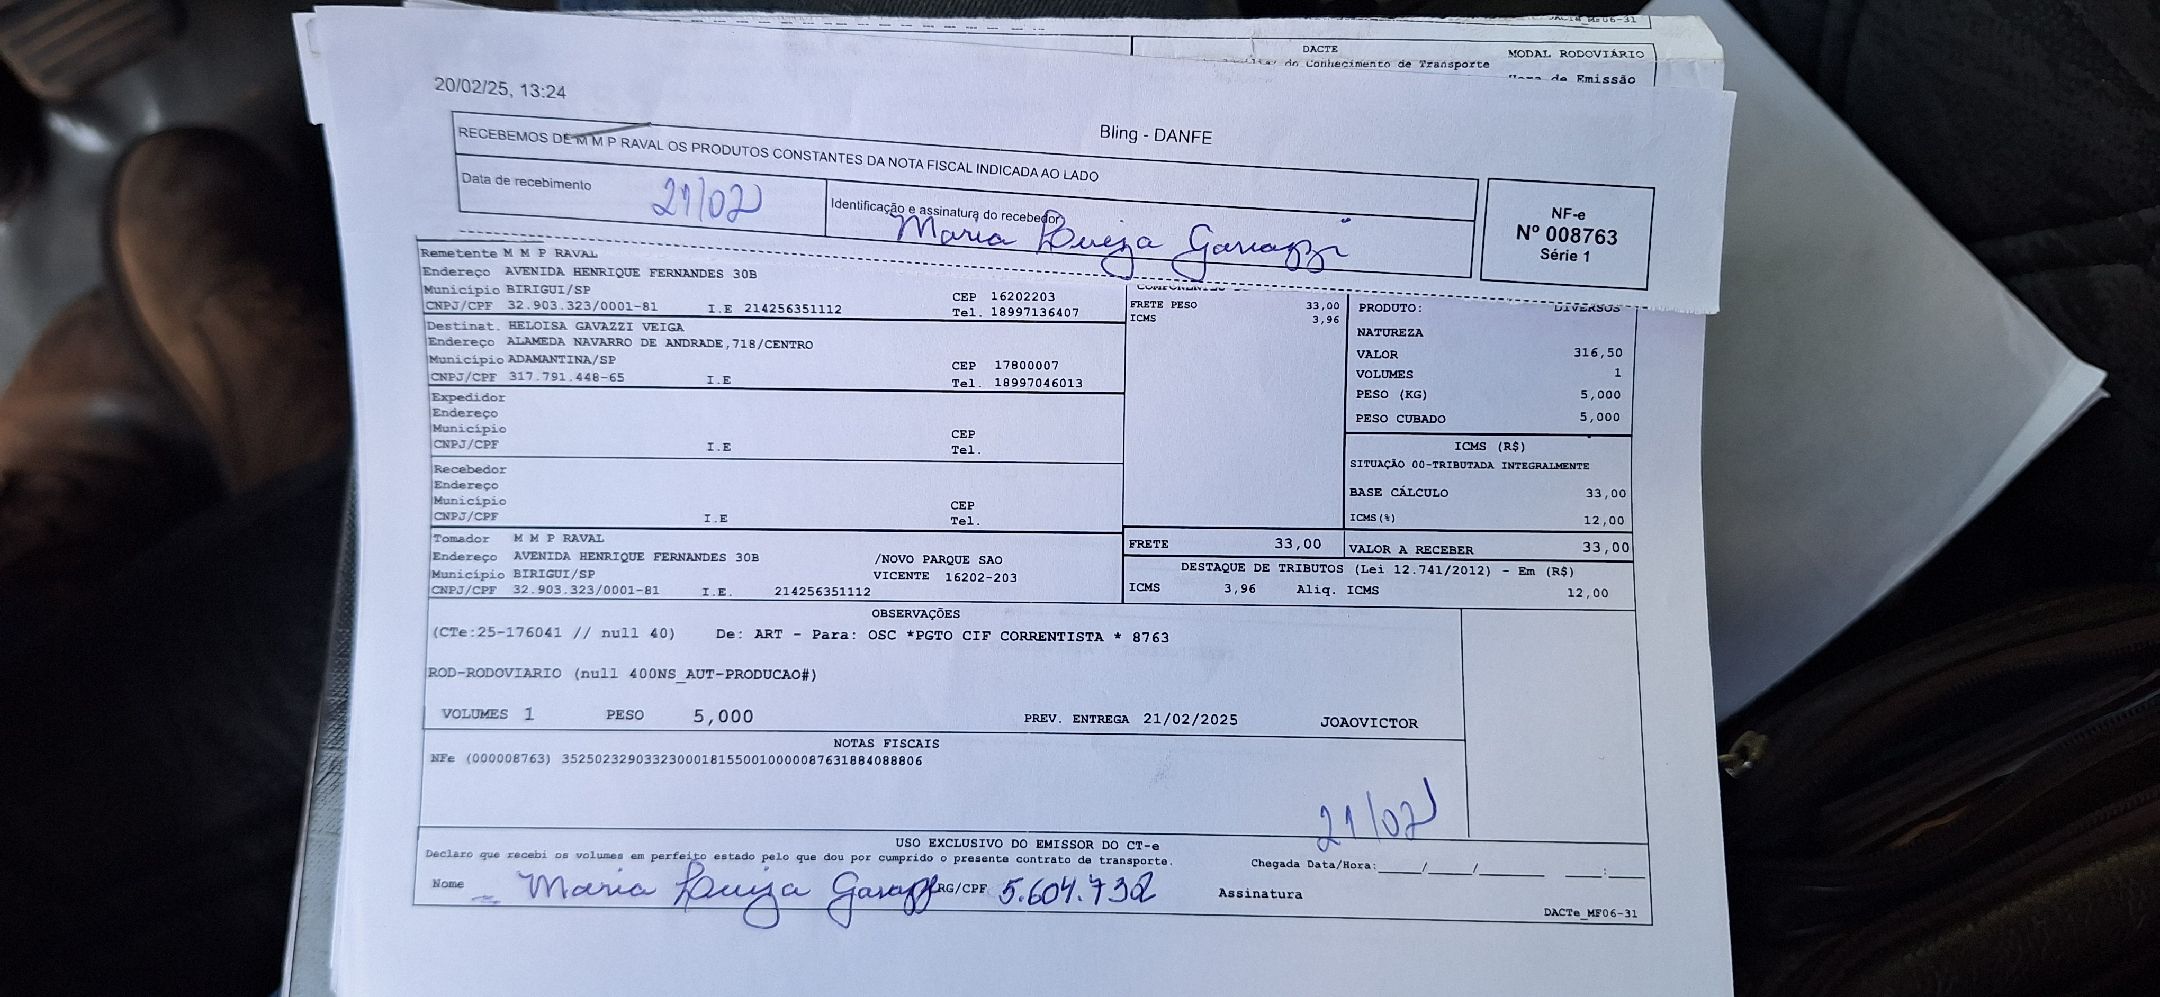 DACTE
MODAL RODOVIÁRIO
do Conhecimento de Transporte
de Emissão
20/02/25, 13:24
Bling - DANFE
RECEBEMOS DE M M P RAVAL OS PRODUTOS CONSTANTES DA NOTA FISCAL INDICADA AO LADO
Data de recebimento 21/02
Identificação e assinatura do recebedor
Maria Luiza Gavazzi
NF-e
Nº 008763
Série 1
Remetente M M P RAVAL
Endereço AVENIDA HENRIQUE FERNANDES 30B
Município BIRIGUI/SP CEP 16202203
CNPJ/CPF 32.903.323/0001-81 I.E 214256351112 Tel. 18997136407
Destinat. HELOISA GAVAZZI VEIGA
Endereço ALAMEDA NAVARRO DE ANDRADE,718/CENTRO
Município ADAMANTINA/SP CEP 17800007
CNPJ/CPF 317.791.448-65 I.E Tel. 18997046013
Expedidor
Endereço
Município CEP
CNPJ/CPF I.E Tel.
Recebedor
Endereço
Município CEP
CNPJ/CPF I.E Tel.
Tomador M M P RAVAL
Endereço AVENIDA HENRIQUE FERNANDES 30B /NOVO PARQUE SAO
Município BIRIGUI/SP VICENTE 16202-203
CNPJ/CPF 32.903.323/0001-81 I.E. 214256351112
FRETE PESO 33,00
ICMS 3,96
PRODUTO: DIVERSOS
NATUREZA
VALOR 316,50
VOLUMES 1
PESO (KG) 5,000
PESO CUBADO 5,000
ICMS (R$)
SITUAÇÃO 00-TRIBUTADA INTEGRALMENTE
BASE CÁLCULO 33,00
ICMS(%) 12,00
FRETE 33,00 VALOR A RECEBER 33,00
DESTAQUE DE TRIBUTOS (Lei 12.741/2012) - Em (R$)
ICMS 3,96 Aliq. ICMS 12,00
OBSERVAÇÕES
(CTe:25-176041 // null 40) De: ART - Para: OSC *PGTO CIF CORRENTISTA * 8763
ROD-RODOVIARIO (null 400NS_AUT-PRODUCAO#)
VOLUMES 1 PESO 5,000 PREV. ENTREGA 21/02/2025 JOAOVICTOR
NOTAS FISCAIS
NFe (000008763) 35250232903323000181550010000087631884088806
21/02
USO EXCLUSIVO DO EMISSOR DO CT-e
Declaro que recebi os volumes em perfeito estado pelo que dou por cumprido o presente contrato de transporte. Chegada Data/Hora:____/____/______ ___:___
Nome Maria Luiza Gavazzi RG/CPF 5.604.732 Assinatura
DACTe_MF06-31